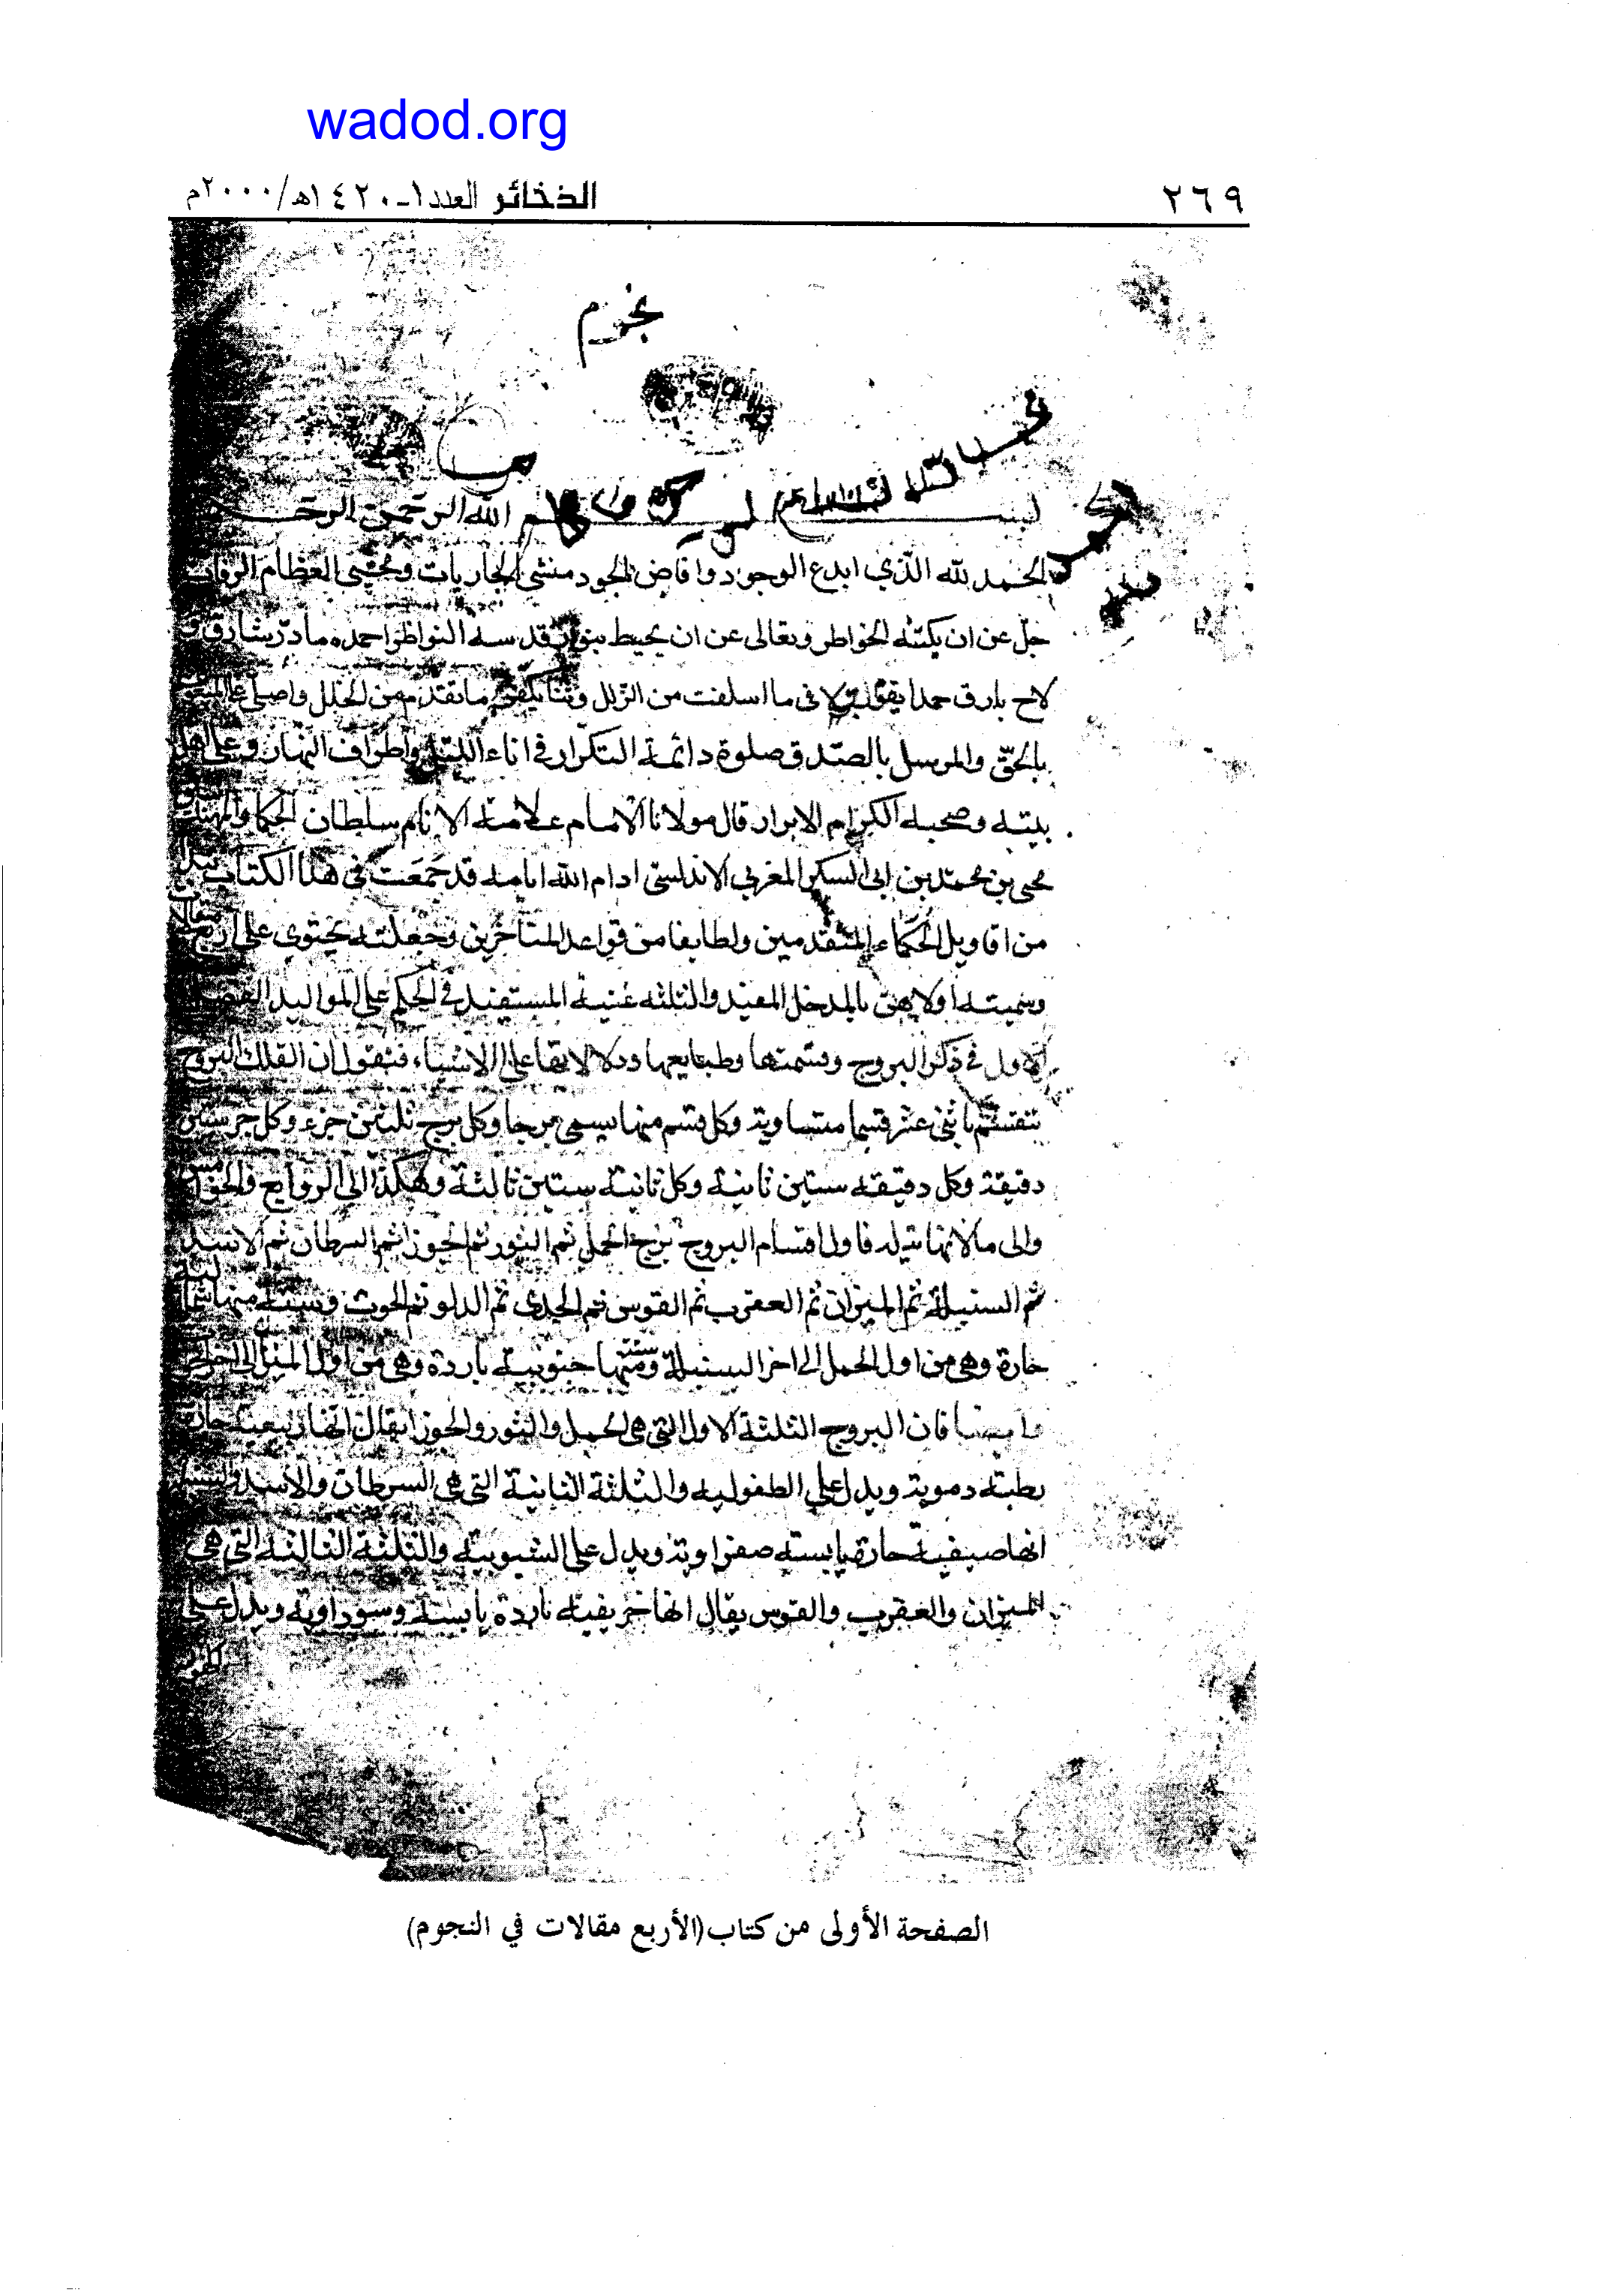 wadod.org
٢٦٩
الذخائر العدد ١-١٤٢٠هـ/٢٠٠٠م
نجوم
بسم الله الرحمن الرحيم
الحمد لله الذي ابدع الوجود وافاض الجود منشى الجاريات ومحيى العظام الرفات
جل عن ان يكتنه الخواطر وتعالى عن ان يحيط قدسه النواظر احمده ما در شارق و
لاح بارق حمدا ما اسلفت من الزلل وثنا يكفر ما تقدم من الخلل واصلي على
بالحق والمرسل بالصدق صلوة دائمة التكرار في اناء الليل واطراف النهار وعلى اهل
بيته وصحبه الكرام الابرار قال مولانا الامام علامة الانام سلطان الحكما
يحيى بن محمد بن ابى السكر المغربى الاندلسى ادام الله ايامه قد جمعت فى هذا الكتاب
من اقاويل الحكماء المتقدمين ولطايفا من قواعد المتاخرين وجعلته يحتوى على اربع مقالات
وسميته بالمدخل المفيد والثلثه غنية المستفيد فى الحكم على المواليد
الاول فى ذكر البروج وقسمتها وطبايعها ودلالاتها على الاشياء فنقول ان الفلك البروج
تنقسم باثنى عشر قسما متساوية وكل قسم منها يسمى برجا وكل برج ثلثين جزء وكل جزء ستين
دقيقة وكل دقيقه ستين ثانية وكل ثانية ستين ثالثة وهكذا الى الروابع والخوامس
والى ما لا نهاية له فاول اقسام البروج برج الحمل ثم الثور ثم الجوزا ثم السرطان ثم الاسد
ثم السنبلة ثم الميزان ثم العقرب ثم القوس ثم الجدى ثم الدلو ثم الحوت وستة منها شمالية
حارة وهى من اول الحمل الى اخر السنبلة وستة منها جنوبية باردة وهى من اول الميزان الى اخر
وايضا فان البروج الثلثة الاول التى هى الحمل والثور والجوزا يقال انها ربيعية حارة
رطبة دموية ويدل على الطفولية والثلثة الثانية التى هى السرطان والاسد والسنبلة
انها صيفية حارة يابسة صفراوية ويدل على الشبوبية والثلثة الثالثة التى هى
الميزان والعقرب والقوس يقال انها خريفية باردة يابسة وسوداوية ويدل على
الصفحة الأولى من كتاب (الأربع مقالات في النجوم)